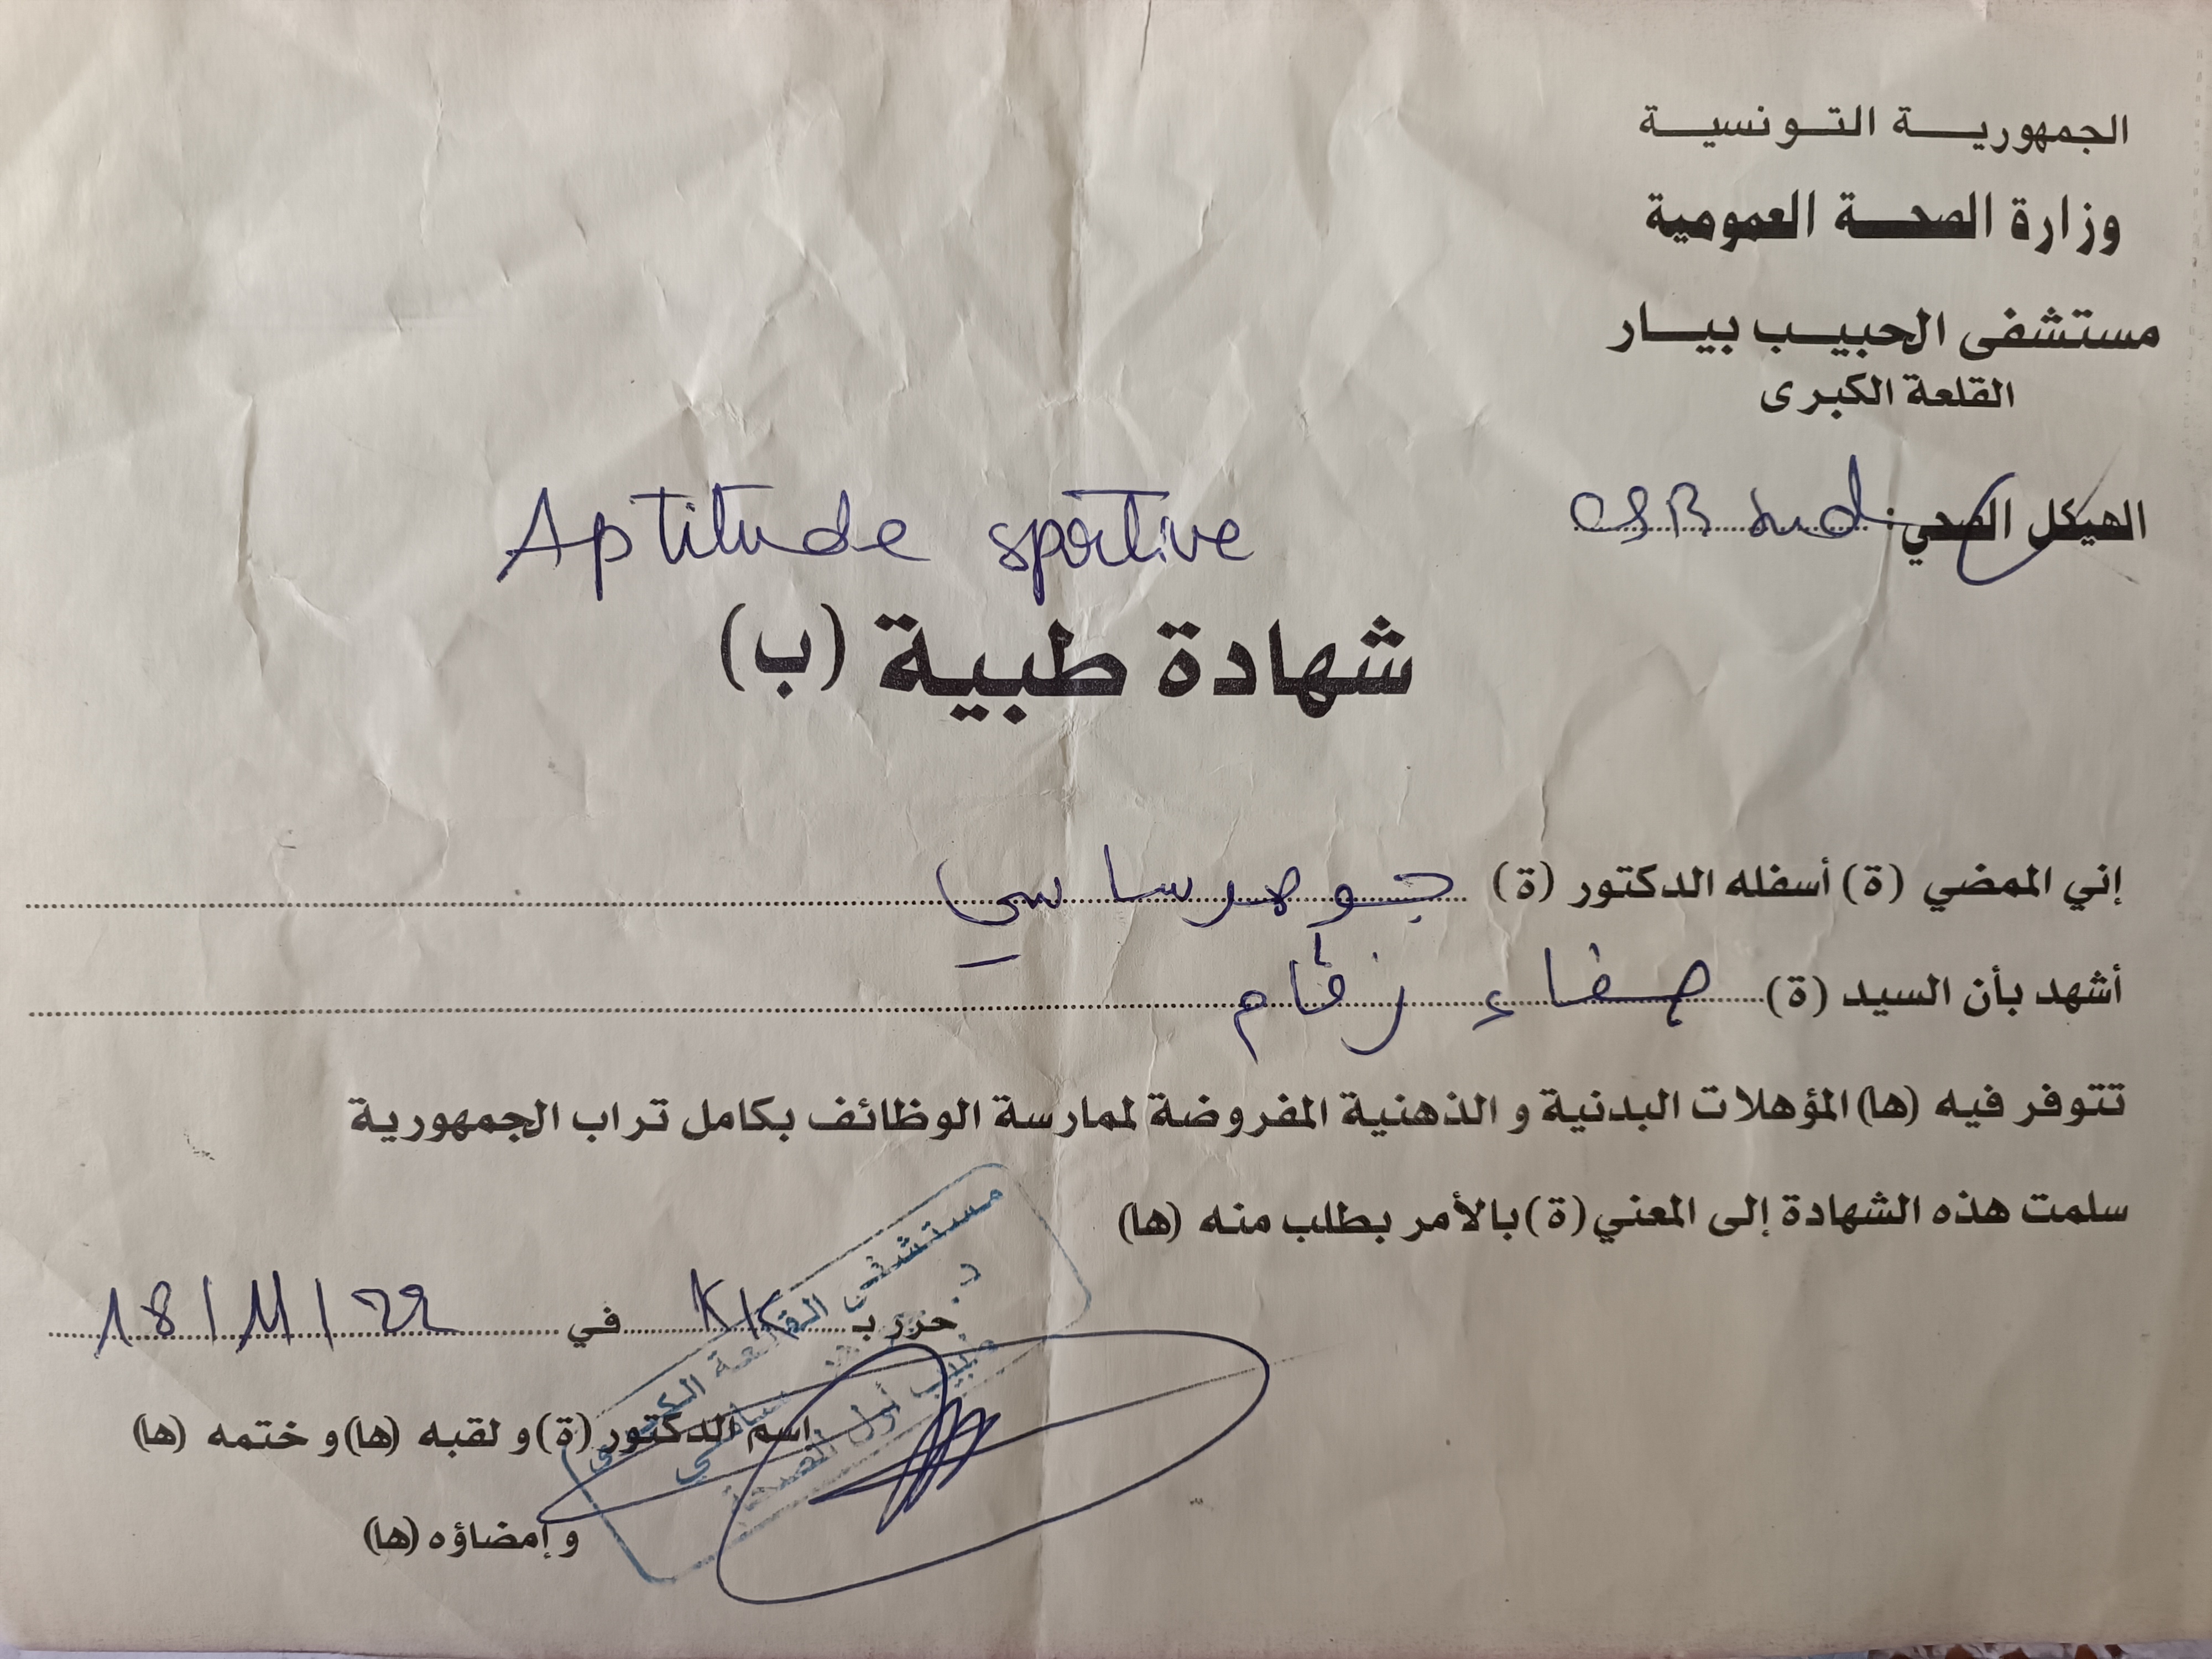 الجمهورية التونسية
وزارة الصحة العمومية
مستشفى الحبيب بيار
القلعة الكبرى
الهيكل الصحي: CSB Sud
Aptitude sportive
شهادة طبية (ب)
إني الممضي (ة) أسفله الدكتور (ة) جوهر ساسي
أشهد بأن السيد (ة) صفاء زقام
تتوفر فيه (ها) المؤهلات البدنية و الذهنية المفروضة لممارسة الوظائف بكامل تراب الجمهورية
سلمت هذه الشهادة إلى المعني (ة) بالأمر بطلب منه (ها)
حرر بـ KK في 18/11/22
اسم الدكتور (ة) و لقبه (ها) و ختمه (ها)
و إمضاؤه (ها)
مستشفى القلعة الكبرى
د. ساسي
طبيب أول للصحة